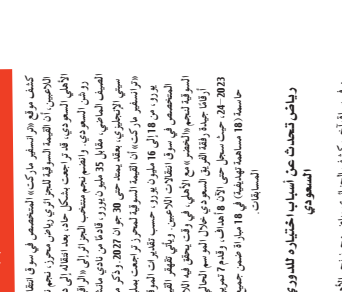 كشف موقع «ترانسفير ماركت» المتخصص في سوق انتقا
اللاعبين، أن القيمة السوقية للجزائري رياض محرز، نجم ن
الأهلي السعودي، قد تراجعت بشكل حاد، بعد انتقاله إلى د
روشن السعودي. وانضم نجم منتخب الجزائر إلى «الراق
الصيف الماضي، مقابل 35 مليون يورو، قادمًا من نادي مانش
سيتي الإنجليزي، بعقد يمتد حتى 30 جوان 2027. وذكر م
«ترانسفير ماركت» أن القيمة السوقية لمحرز تراجعت بملي
يورو، من 18 إلى 16 مليون يورو، حسب تقديرات الموق
المتخصص في سوق انتقالات اللاعبين. ويأتي تقهقر القي
السوقية لنجم «الخضر» مع الأهلي، في وقت يحقق فيه اللا
أرقامًا جيدة رفقة الفريق السعودي خلال الموسم الحالي
2023-24، حيث سجل حتى الآن 8 أهداف، وقدم 7 تمريرا
حاسمة (18 مساهمة تهديفية) في 18 مباراة ضمن جميع
المسابقات.
رياض تحدث عن أسباب اختياره للدوري
السعودي